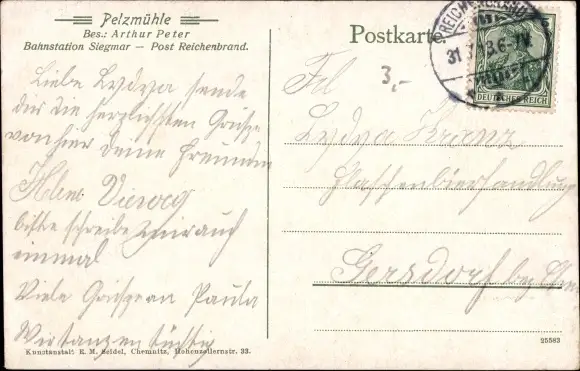 Pelzmühle
Bes.: Arthur Peter
Bahnstation Siegmar — Post Reichenbrand.
Postkarte
31
DEUTSCHES REICH
3,-
Liebe Lydya sende
dir die herzlichsten Grüße
von hier deine Freundin
Helene Vieweg
bitte schreibe mir auch
einmal
Viele Grüße an Paula
Wir tanzen tüchtig
Frl
Lydya Kranz
Flaschenbierhandlung
Gersdorf bez. Chem
Kunstanstalt E. M. Seidel, Chemnitz, Hohenzollernstr. 33.
25583